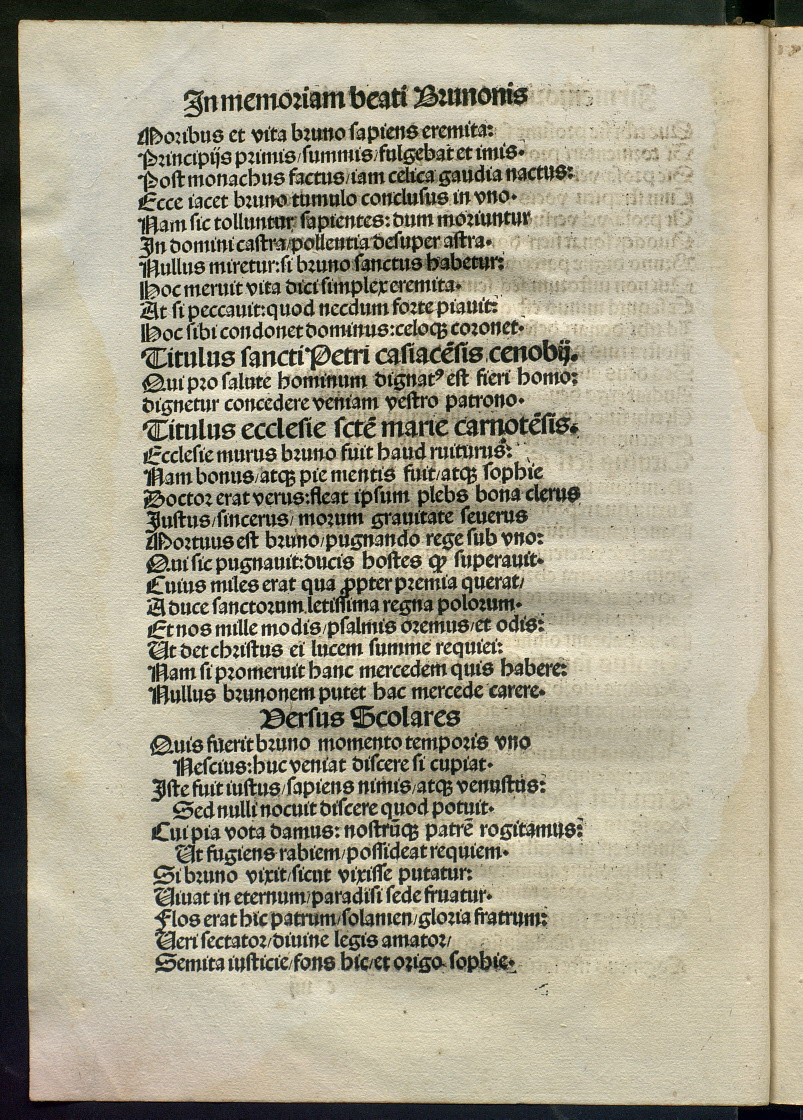 In memoriam beati Brunonis
Moribus et vita bruno sapiens eremita:
Principijs primis/summis/fulgebat et imis.
Post monachus factus/iam celica gaudia nactus:
Ecce iacet bruno tumulo conclusus in vno.
Nam sic tolluntur sapientes: dum moriuntur
In domini castra/pollentia desuper astra.
Nullus miretur:si bruno sanctus habetur:
Hoc meruit vita dici simplex eremita.
At si peccauit:quod necdum forte piauit:
Hoc sibi condonet dominus:celoqꝫ coronet.
Titulus sancti Petri casiacēsis cenobij.
Qui pro salute hominum dignatꝰ est fieri homo:
dignetur concedere veniam vestro patrono.
Titulus ecclesie sctē marie carnotēsis.
Ecclesie murus bruno fuit haud ruiturus:
Nam bonus/atqꝫ pie mentis fuit/atqꝫ sophie
Doctor erat verus:fleat ipsum plebs bona clerus
Justus/sincerus/ morum grauitate seuerus
Mortuus est bruno/pugnando rege sub vno:
Qui sic pugnauit:ducis hostes ꝙ superauit.
Cuius miles erat qua ꝓpter premia querat/
A duce sanctorum letissima regna polorum.
Et nos mille modis/psalmis oremus/et odis:
Ut det christus ei lucem summe requiei:
Nam si promeruit hanc mercedem quis habere:
Nullus brunonem putet hac mercede carere.
Versus Scolares
Quis fuerit bruno momento temporis vno
Nescius:huc veniat discere si cupiat.
Iste fuit iustus/sapiens nimis/atqꝫ venustus:
Sed nulli nocuit discere quod potuit.
Cui pia vota damus: nostrūqꝫ patrē rogitamus:
Ut fugiens rabiem/possideat requiem.
Si bruno vixit/sicut vixisse putatur:
Uiuat in eternum/paradisi sede fruatur.
Flos erat hic patrum/solamen/gloria fratrum:
Ueri sectator/diuine legis amator/
Semita iusticie/fons hic/et origo sophie.